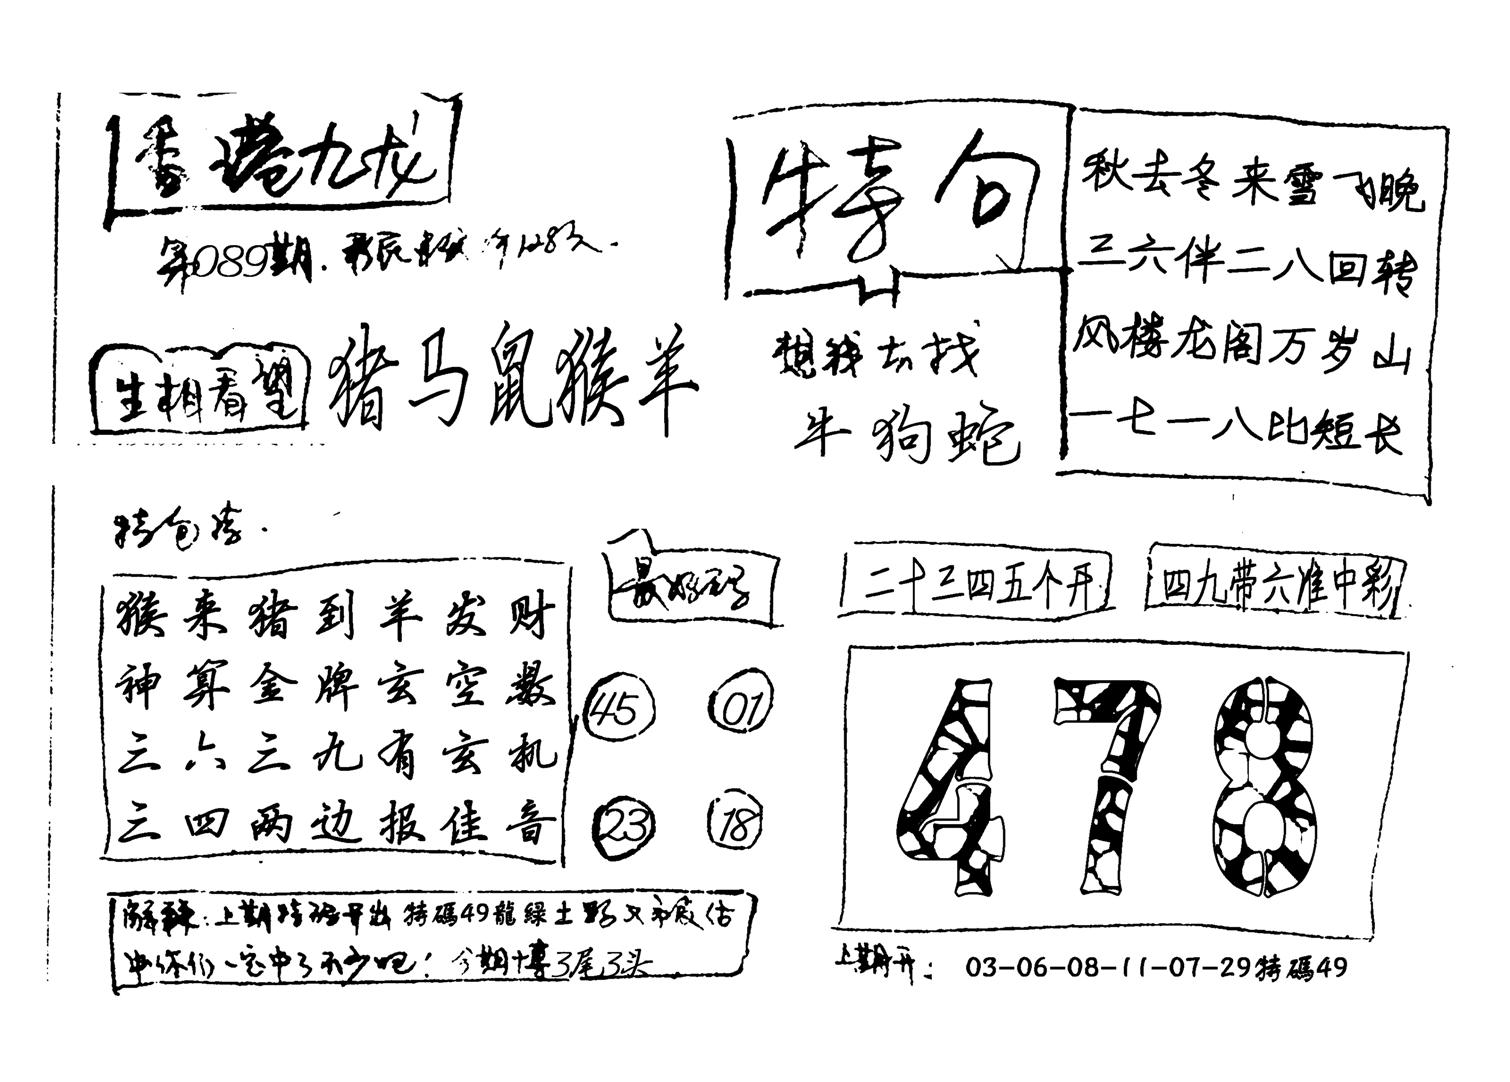 香港九龙
第089期.
生相看望
猪马鼠猴羊
特句
想找去找
牛狗蛇
秋去冬来雪飞晚
三六伴二八回转
风楼龙阁万岁山
一七一八比短长
特包库.
猴来猪到羊发财
神算金牌玄空数
三六三九有玄机
三四两边报佳音
最好码
45 01
23 18
二十三四五个开
四九带六准中彩
478
解释:上期特码开出特碼49龍綠土
中你们一定中了不少吧!今期博3尾3头
上期开: 03-06-08-11-07-29特碼49